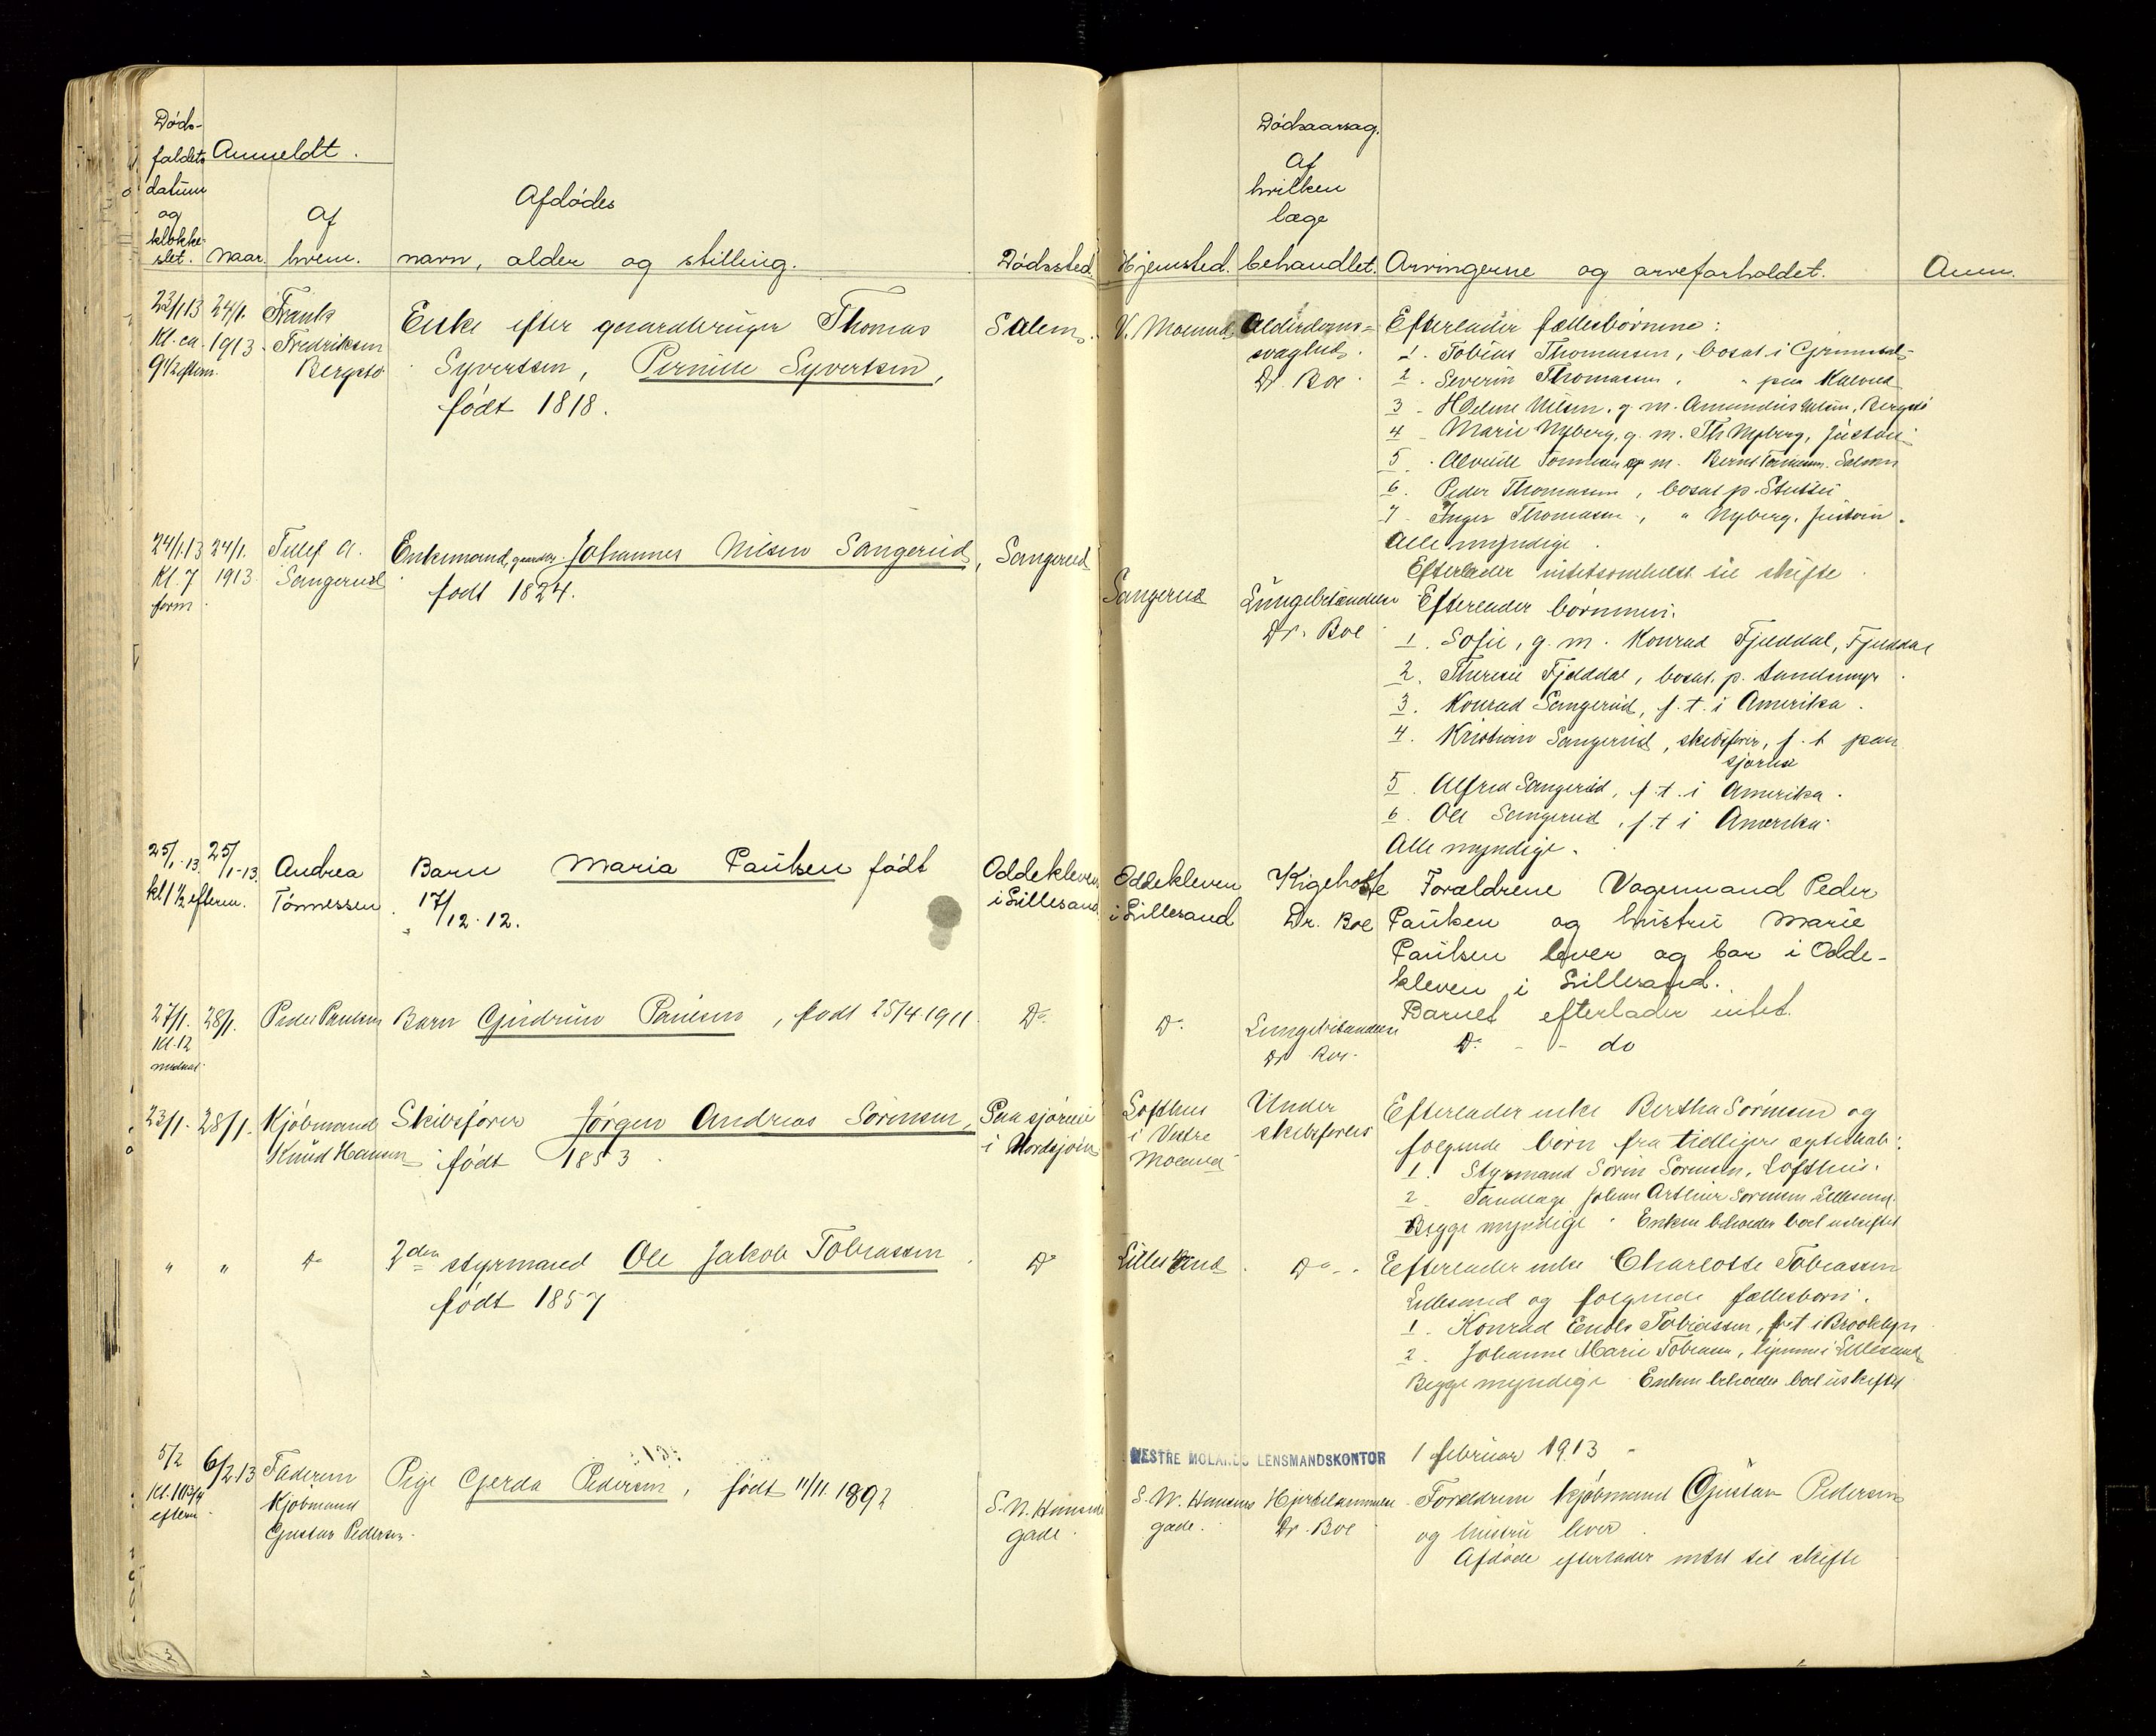 Døds-
faldets
datum
og
klokke-
slet.
Anmeldt.
naar
Af
hvem.
Afdødes
navn, alder og stilling.
Dødssted.
Hjemsted.
Dødsaarsag.
Af
hvilken
læge
behandlet.
Arvingerne og arveforholdet.
Anm.
23/1 13
Kl. ca.
9 1/2 efterm.
24/1.
1913.
Frank
Fredriksen
Bergstø
Enke efter gaardbruger Thomas
Syvertsen, Pernille Syvertsen,
født 1818.
Salem.
V. Moland.
Alderdoms-
svaghed.
Dr. Boe.
Efterlader fællesbørnene:
1. Tobias Thomassen, bosat i Grimstad
2. Severin Thomassen, " paa Kalvild
3. Helene Nilsen, g. m. Amundus Nilsen, Bergstø
4. Marie Nyberg, g. m. Th Nyberg, Justøi
5. Alvilde Tønnesen g m. Bernt Tønnesen, Salem
6. Peder Thomassen, bosat p.
7. Inger Thomassen, " Nyberg, Justøin.
Alle myndige.
Efterlader intetsomhelst til skifte.
24/1.13
Kl. 7
form.
24/1.
1913.
Tellef A.
Sangerud
Enkemand, gaardbr. Johannes Nilsen Sangerud,
født 1824.
Sangerud
Sangerud
Lungebetændelse
Dr. Boe
Efterlader børnene:
1. Sofie, g. m. Konrad Fjelddal, Fjelddal
2. Therese Fjelddal, bosat. p.
3. Konrad Sangerud, f. t. i Amerika.
4. Kristian Sangerud, skibsfører, f. t paa
sjøen
5. Alfred Sangerud, f. t. i Amerika.
6. Ole Sangerud, f. t i Amerika.
Alle myndige.
25/1.13.
kl 1 1/2 efterm.
25/1-13.
Andrea
Tønnessen.
Barn Maria Paulsen født
17/12.12.
Oddekleven
i Lillesand
Oddekleven
i Lillesand
Kighoste
Dr. Boe
Forældrene Vognmand Peder
Paulsen og hustru Marie
Paulsen lever og bor i Odde-
kleven i Lillesand.
Barnet efterlader intet.
27/1.
Kl. 12
midnat.
28/1.
Peder Paulsen
Barn Gudrun Paulsen, født 25/4.1911.
Do
Do
Lungebetændelse
Dr Boe.
Do - - do
23/1.
28/1.
Kjøbmand
Knud Hansen
Skibsfører Jørgen Andreas Sørensen,
født 1853.
Paa sjøen
i Nordsjøen
Lofthus
i Vestre
Moland
Under
skibsforlis
Efterlader enke Bertha Sørensen og
følgende børn fra tidligere ægteskab:
1. Styrmand Søren Sørensen, Lofthus.
2. Tandlæge Johan Arthur Sørensen Lillesand.
Begge myndige. Enken beholder boet uskiftet
" " Do
2den styrmand Ole Jakob Tobiassen
født 1857
Do
Lillesand.
Do -.
Efterlader enke Charlotte Tobiassen
Lillesand og følgende fællesbørn.
1. Konrad Tobiassen, f. t i Brooklyn
2. Johanne Marie Tobiassen, hjemme i Lillesand
Begge myndige. Enken beholder boet uskiftet
VESTRE MOLANDS LENSMANDSKONTOR 1 februar 1913 -
5/2
Kl. 10 3/4
efterm.
6/2.13
Faderen
Kjøbmand
Gustav Pedersen.
Pige Gerda Pedersen, født 11/11.1892
S. N. Hansens
gade.
S. N. Hansens
gade.
Hjertelammelse
Dr. Boe
Forældrene kjøbmand Gustav Pedersen
og hustru lever.
Afdøde efterlader intet til skifte